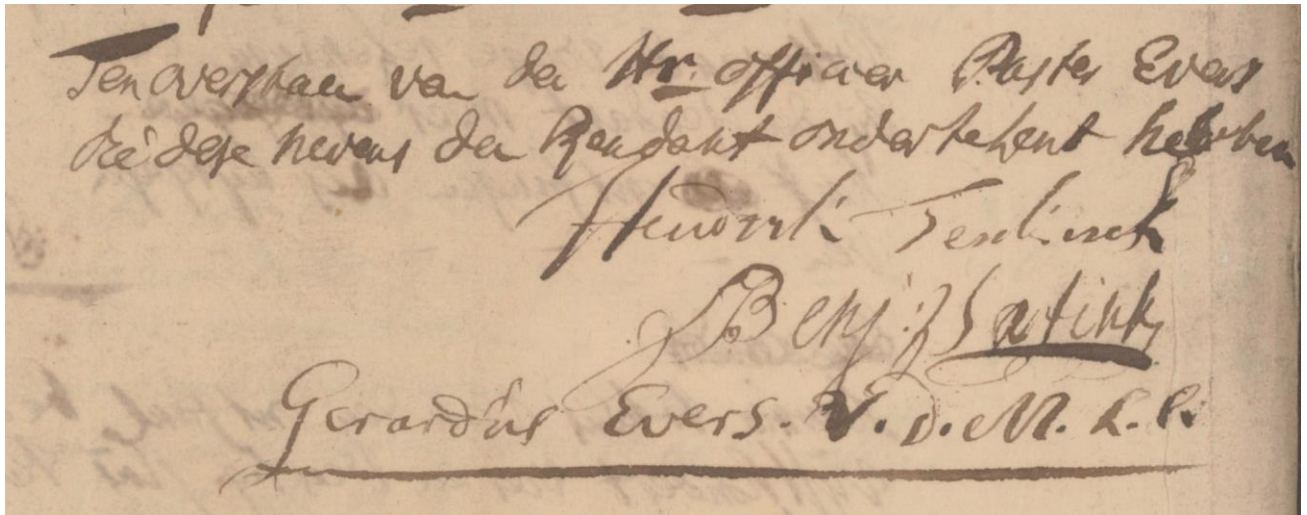 Ten overstaen van den Hr. officier Paster Evers
die dese nevens den Rendant ondertekent hebben
Hendrik
Benj:
Gerardus Evers. V. D. M. L. C.